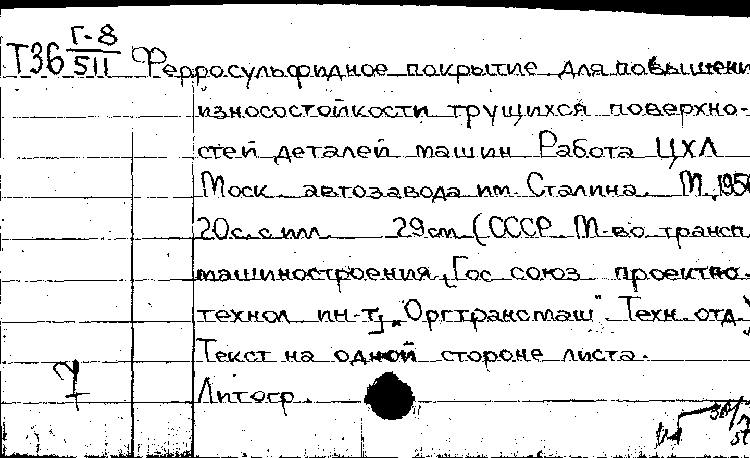 Т36 Г-8/511 Ферросульфидное покрытие для повышени
износостойкости трущихся поверхно-
стей деталей машин Работа ЦХЛ -
Моск. автозавода им. Сталина. М, 195
20с. с илл. 29см (СССР. М-во трансп.
машиностроения, [Гос союз проектно-
технол ин-т] „Оргтрансмаш". Техн. отд.)
Текст на одной стороне листа.
Литогр.